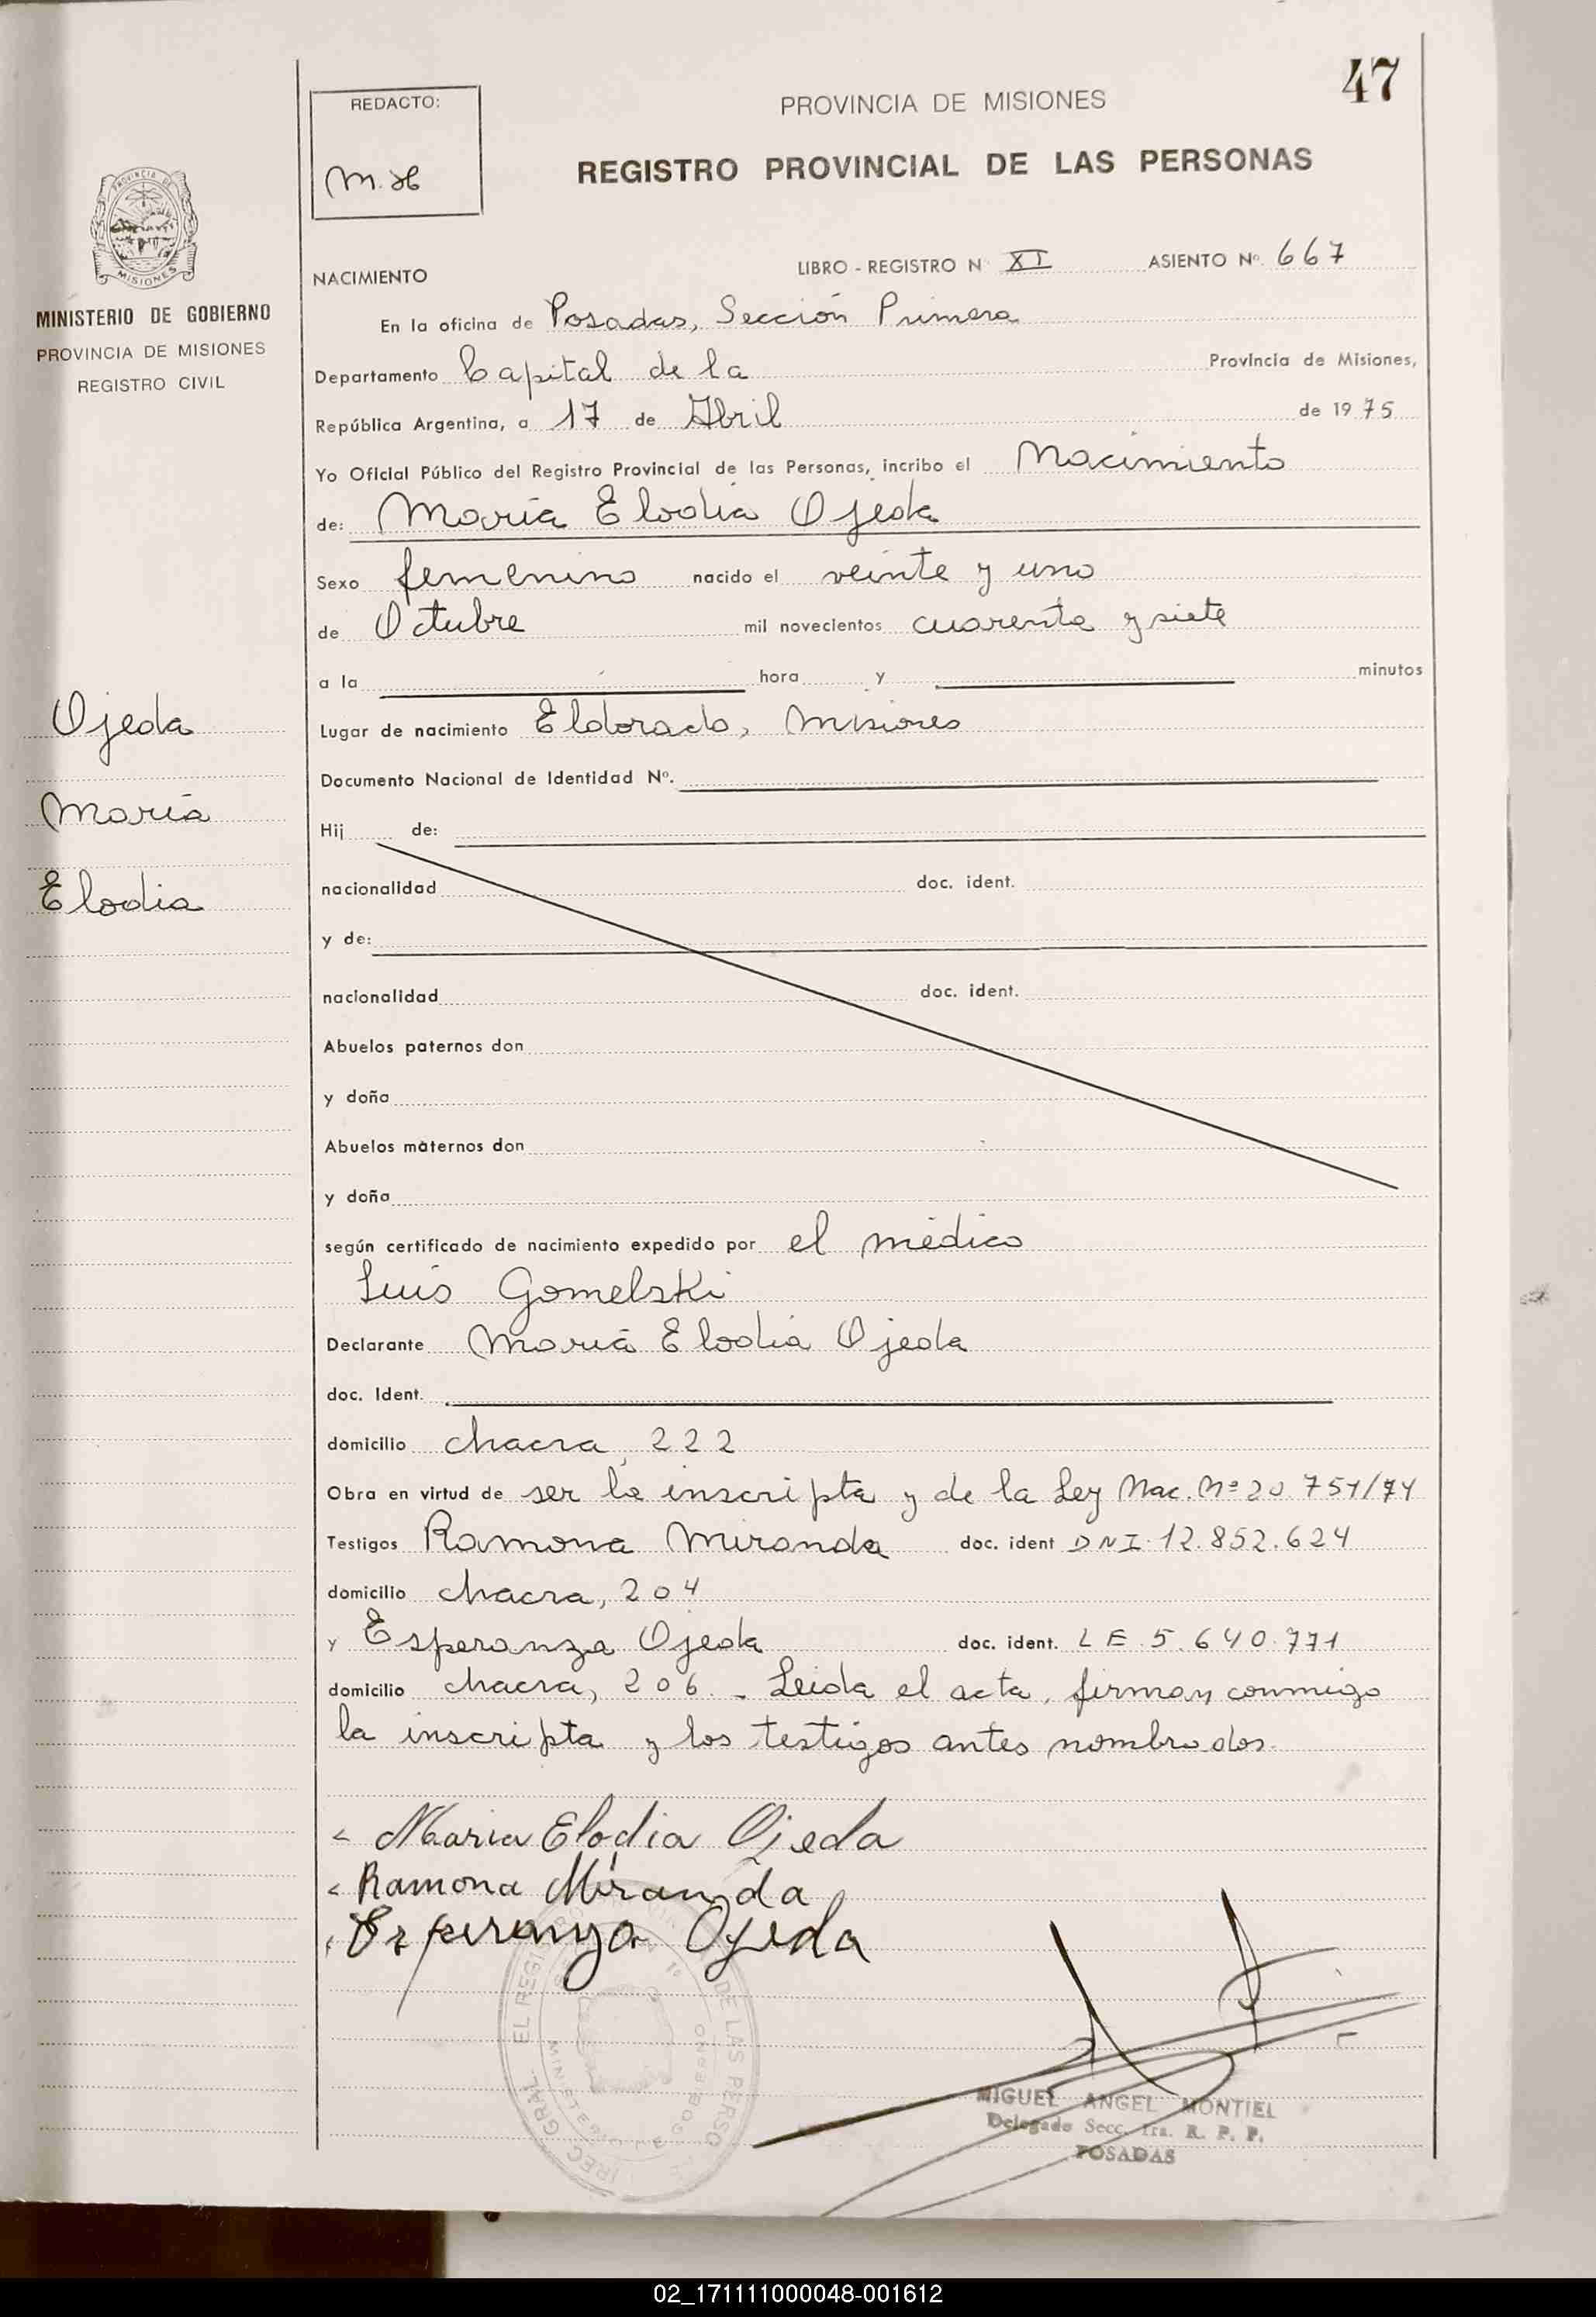 47
REDACTO:
PROVINCIA DE MISIONES
REGISTRO PROVINCIAL DE LAS PERSONAS
PROVINCIA DE
MISIONES
MINISTERIO DE GOBIERNO
PROVINCIA DE MISIONES
REGISTRO CIVIL
NACIMIENTO LIBRO - REGISTRO N XI ASIENTO Nº. 667
En la oficina de Posadas, Sección Primera
Departamento Capital de la Provincia de Misiones,
República Argentina, a 17 de Abril de 1975
Yo Oficial Público del Registro Provincial de las Personas, incribo el Nacimiento
de: María Elodia Ojeda
Sexo femenino nacido el veinte y uno
de Octubre mil novecientos cuarenta y siete
a la hora y minutos
Lugar de nacimiento Eldorado, Misiones
Documento Nacional de Identidad Nº.
Ojeda
María
Elodia
Hij de:
nacionalidad doc. ident.
y de:
nacionalidad doc. ident.
Abuelos paternos don
y doña
Abuelos maternos don
y doña
según certificado de nacimiento expedido por el médico
Luis Gomelski
Declarante María Elodia Ojeda
doc. Ident.
domicilio chacra, 222
Obra en virtud de ser la inscripta y de la Ley Nac. Nº 20 751/74
Testigos Ramona Miranda doc. ident DNI. 12.852.624
domicilio chacra, 204
y Esperanza Ojeda doc. ident. LE 5.640.771
domicilio chacra, 206. - Leida el acta, firman conmigo
la inscripta y los testigos antes nombrados.
Maria Elodia Ojeda
Ramona Miranda
Esperanza Ojeda
MIGUEL ANGEL MONTIEL
Delegado Secc. 1ra. R. P. P.
POSADAS
02_171111000048-001612